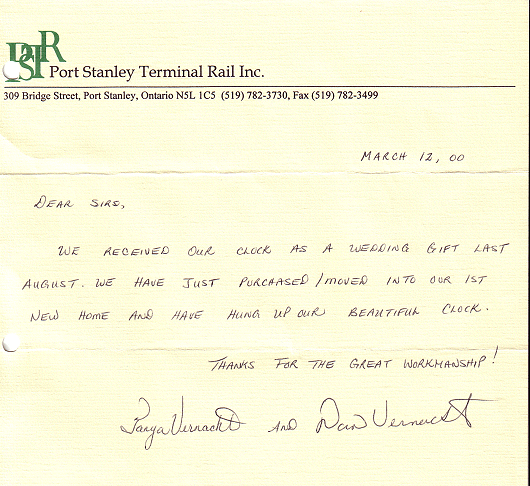 PSTR
Port Stanley Terminal Rail Inc.
309 Bridge Street, Port Stanley, Ontario N5L 1C5 (519) 782-3730, Fax (519) 782-3499
MARCH 12, 00
DEAR SIRS,
WE RECEIVED OUR CLOCK AS A WEDDING GIFT LAST
AUGUST. WE HAVE JUST PURCHASED/MOVED INTO OUR 1ST
NEW HOME AND HAVE HUNG UP OUR BEAUTIFUL CLOCK.
THANKS FOR THE GREAT WORKMANSHIP!
Tanya Vernacht AND Dan Vernacht